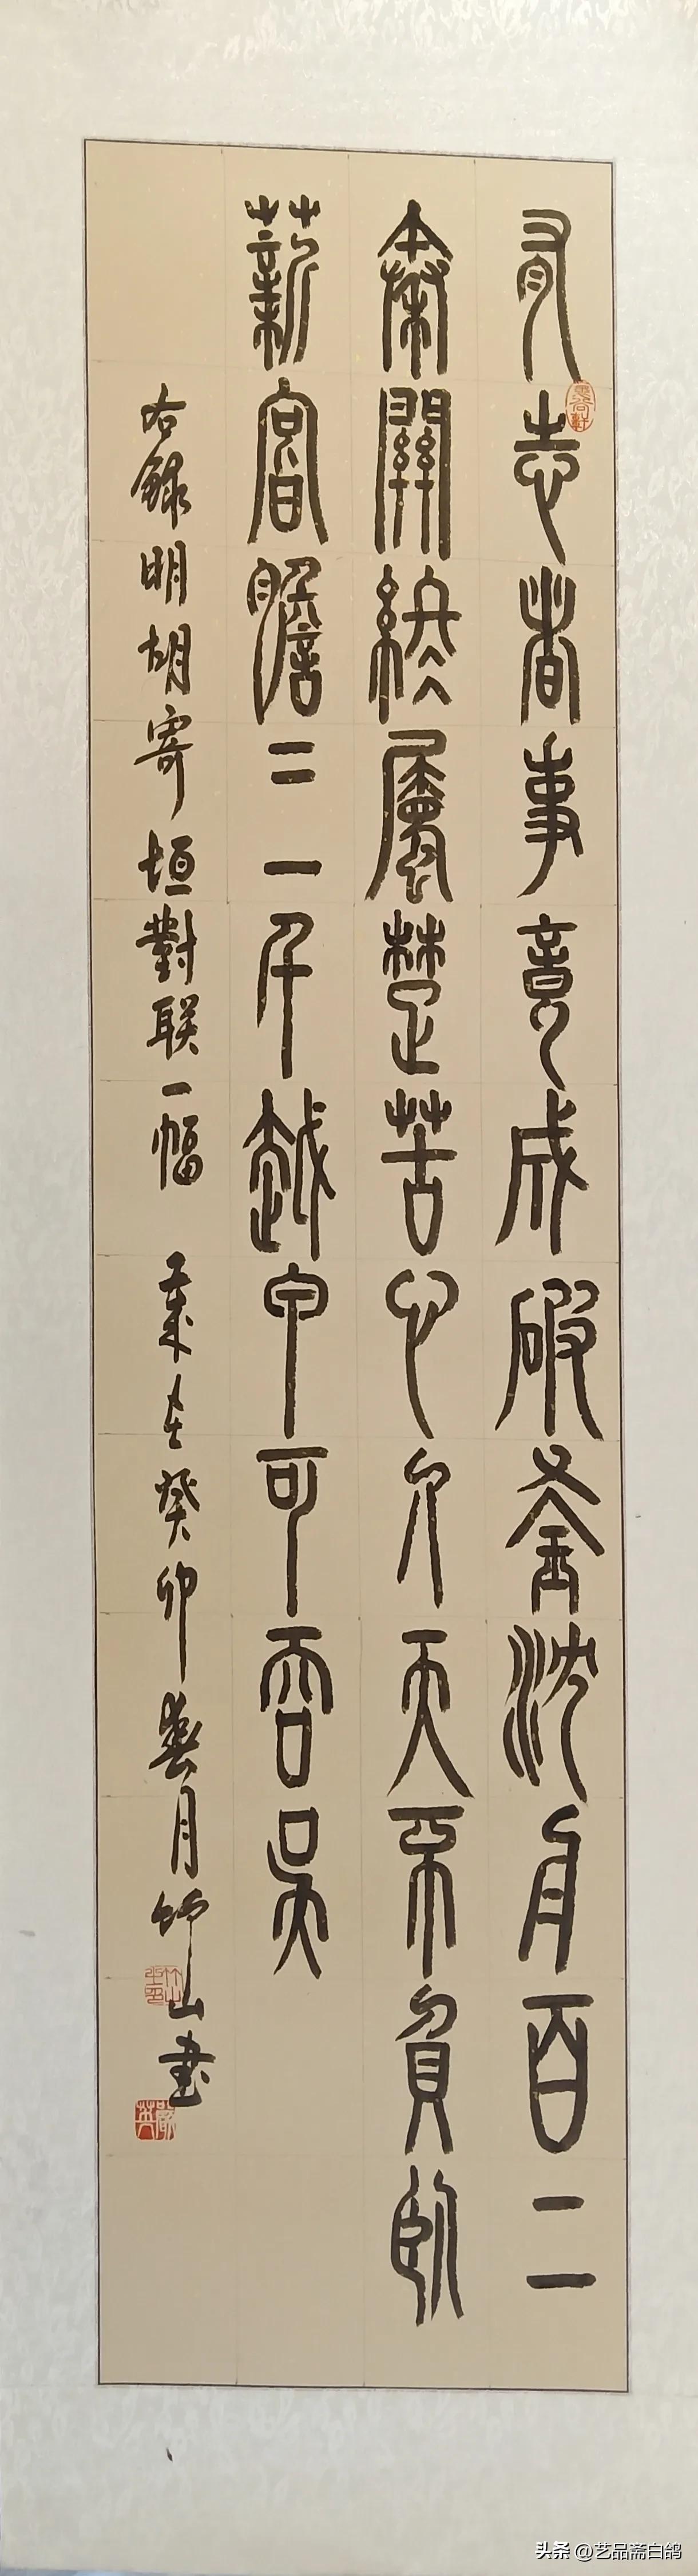 有志者事竟成破釜沈舟百二
秦關終屬楚苦心人天不負臥
薪嘗膽三千越甲可吞吳
右錄明胡寄垣對联一幅 歲在癸卯春月竹山書
头条 @艺品斋白鸽